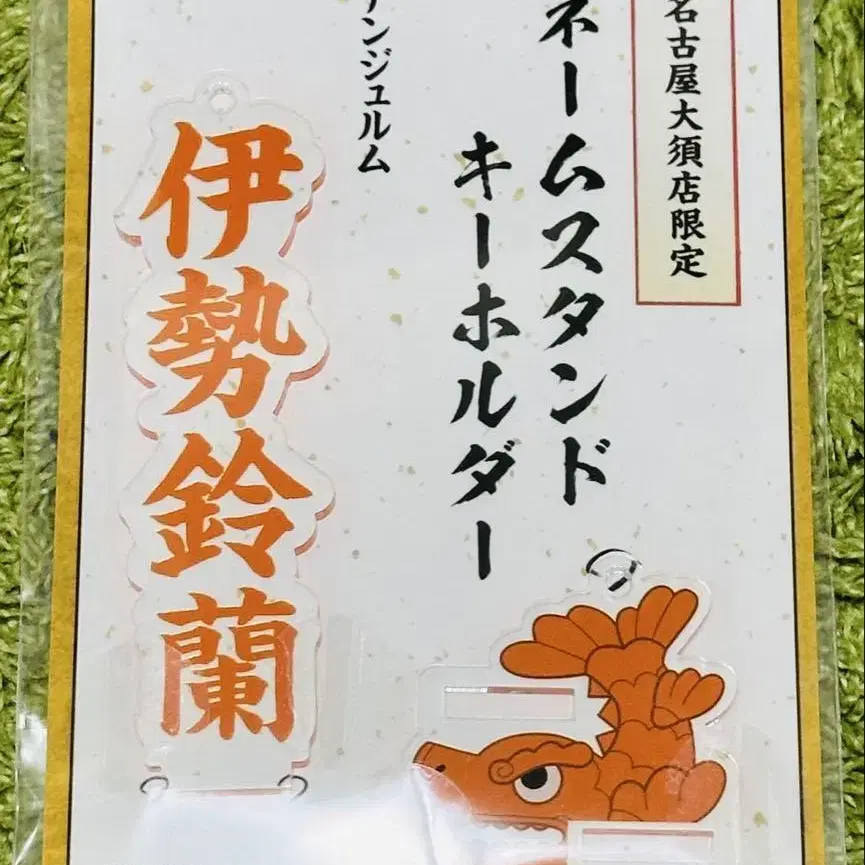 名古屋大須店限定
ネームスタンド
キーホルダー
ンジュルム
伊勢鈴蘭